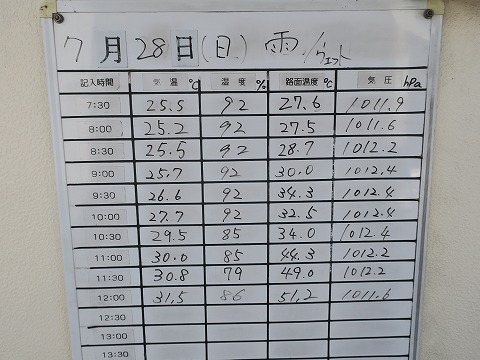 7月28日(日) 雨/ウェット
記入時間 気温 ℃ 湿度 % 路面温度 ℃ 気圧 hPa
7:30 25.5 92 27.6 1011.9
8:00 25.2 92 27.5 1011.6
8:30 25.5 92 28.7 1012.2
9:00 25.7 92 30.0 1012.4
9:30 26.6 92 34.3 1012.4
10:00 27.7 92 32.5 1012.4
10:30 29.5 85 34.0 1012.4
11:00 30.0 85 44.3 1012.2
11:30 30.8 79 49.0 1012.2
12:00 31.5 86 51.2 1011.6
12:30
13:00
13:30